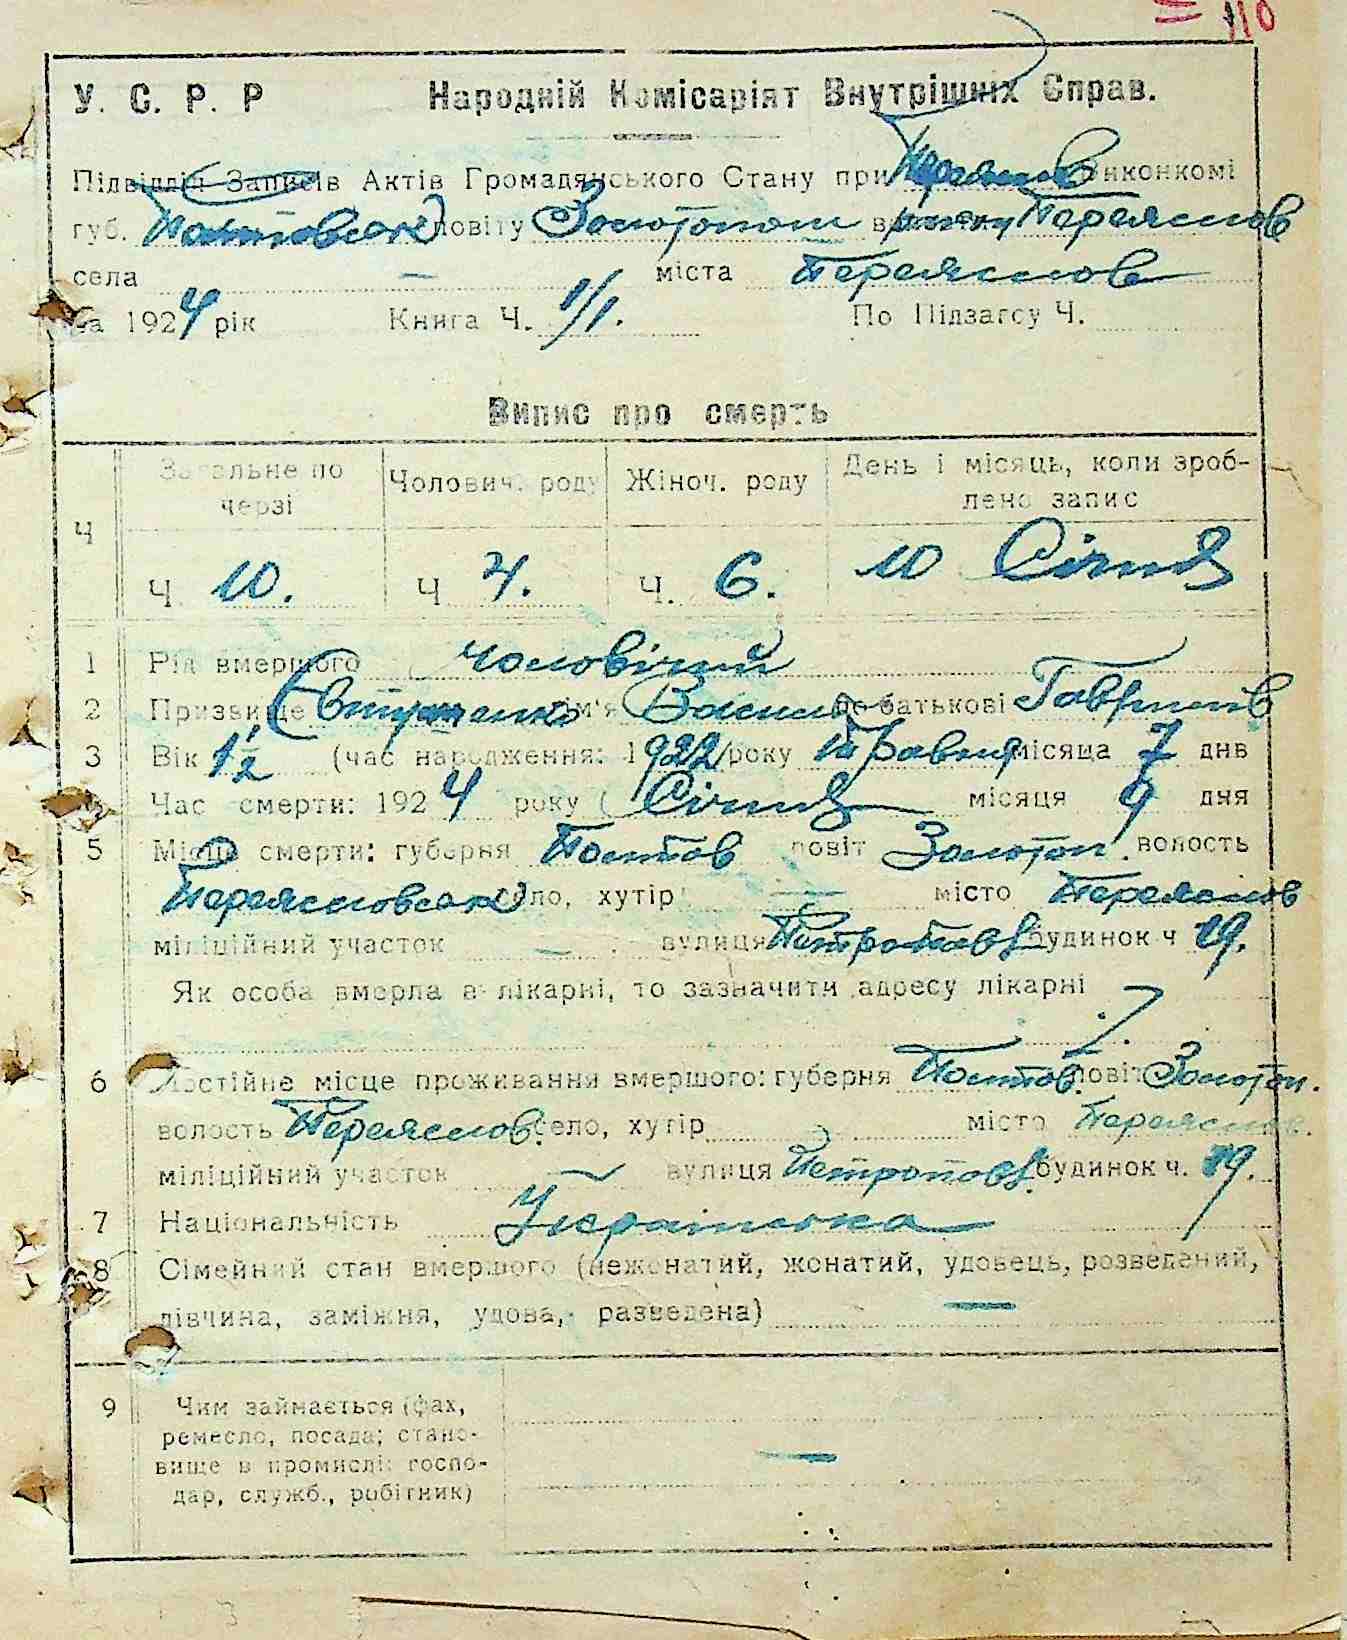 110
У. С. Р. Р Народній Комісаріят Внутрішніх Справ.
Підвідділ Записів Актів Громадянського Стану при Переяслов виконкомі
губ. Полтавської повіту Золотонош району Переяслов
села — міста Переяслов
за 1924 рік Книга Ч. 1/1. По Підзагсу Ч.
Випис про смерть
Ч Загальне по черзі Чоловіч. роду Жіноч. роду День і місяць, коли зроблено запис
Ч 10. Ч 4. Ч. 6. 10 Січня
1 Рід вмершого чоловічий
2 Призвище Євтушенко ім'я Василь по батькові Гаврилів
3 Вік 1 1/2 (час народження: 1922 року Травня місяця 7 днв
4 Час смерти: 1924 року (Січня місяця 9 дня
5 Місце смерти: губерня Полтов повіт Золотон. волость
Переясловської село, хутір — місто Переяслов
міліційний участок — вулиця будинок ч 19.
Як особа вмерла в лікарні, то зазначити адресу лікарні
6 Постійне місце проживання вмершого: губерня Полтов. повіт Золотон.
волость Переяслов. село, хутір місто Переяслов.
міліційний участок — вулиця будинок ч. 19.
7 Національність Українська
8 Сімейний стан вмершого (нежонатий, жонатий, удовець, розведений,
дівчина, заміжня, удова, разведена) —
9 Чим займається (фах,
ремесло, посада; стано-
вище в промислі: госпо-
дар, служб., робітник) —